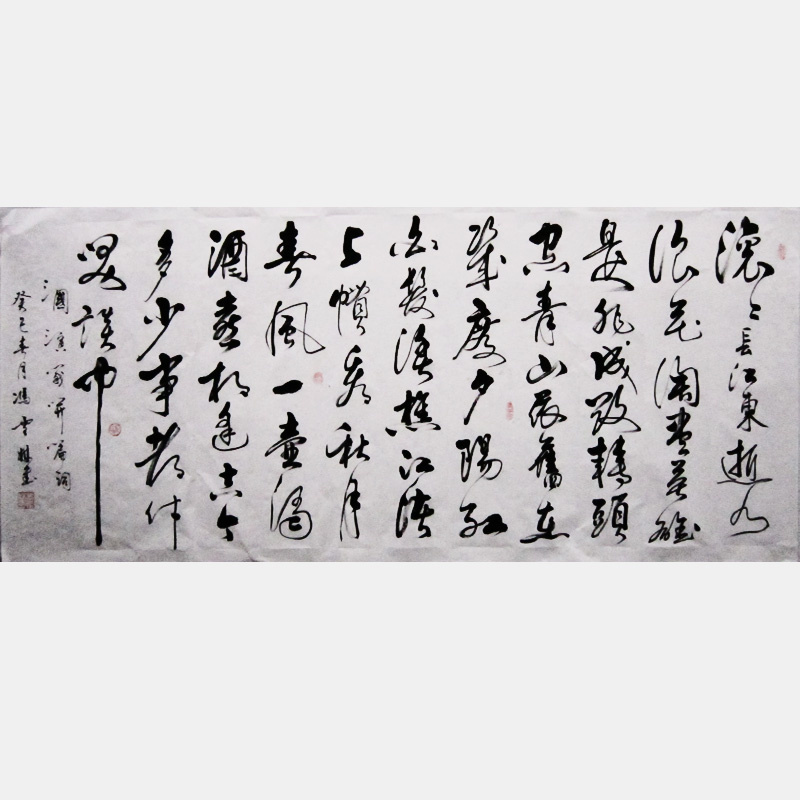 滾〻長江東逝水
浪花淘盡英雄
是非成敗轉頭
空青山依舊在
幾度夕陽紅
白髮漁樵江渚
上慣看秋月
春風一壺濁
酒喜相逢古今
多少事都付
笑談中
三國演義開篇詞
癸巳春月馮